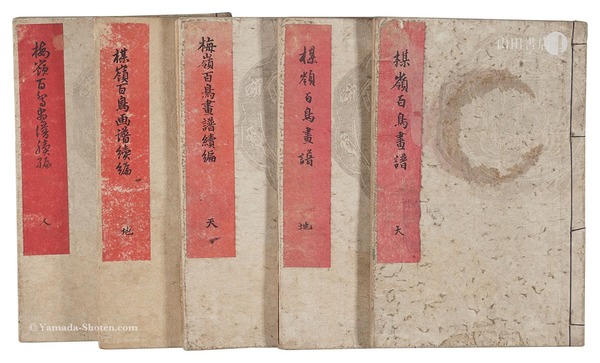 楳嶺百鳥畫譜
天
楳嶺百鳥畫譜
地
梅嶺百鳥畫譜續編
天
楳嶺百鳥画譜續編
地
梅嶺百鳥画譜續編
人
山田書店
©Yamada-Shoten.com